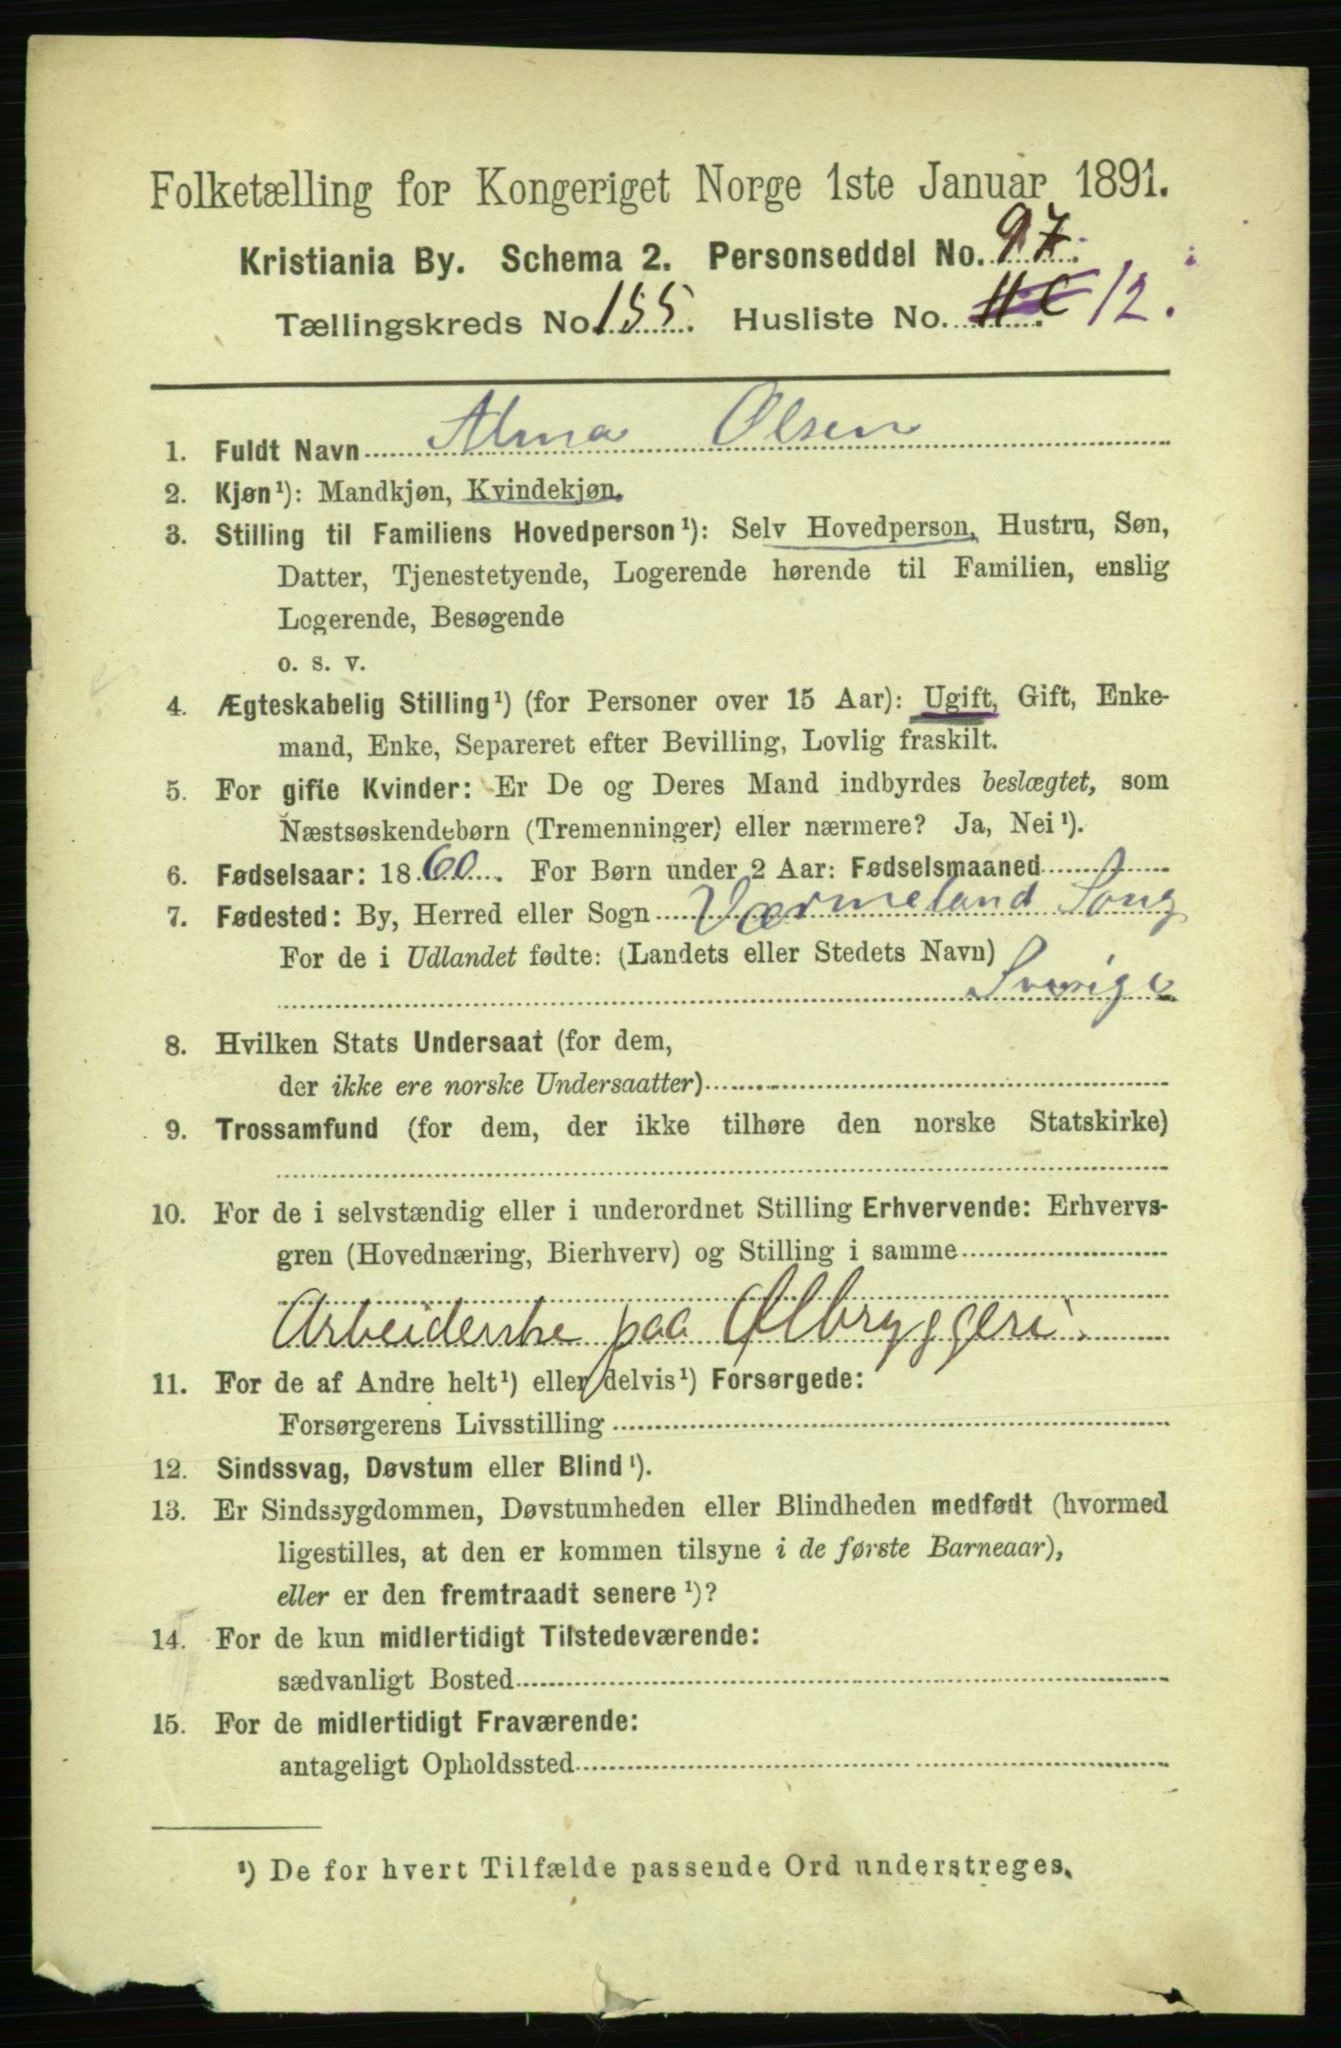 Folketælling for Kongeriget Norge 1ste Januar 1891.
Kristiania By. Schema 2. Personseddel No. 97.
Tællingskreds No. 155. Husliste No. 12.
1. Fuldt Navn Alma Olsen
2. Kjøn¹): Mandkjøn, Kvindekjøn.
3. Stilling til Familiens Hovedperson¹): Selv Hovedperson, Hustru, Søn,
Datter, Tjenestetyende, Logerende hørende til Familien, enslig
Logerende, Besøgende
o. s. v.
4. Ægteskabelig Stilling¹) (for Personer over 15 Aar): Ugift, Gift, Enke-
mand, Enke, Separeret efter Bevilling, Lovlig fraskilt.
5. For gifte Kvinder: Er De og Deres Mand indbyrdes beslægtet, som
Næstsøskendebørn (Tremenninger) eller nærmere? Ja, Nei¹).
6. Fødselsaar: 1860. For Børn under 2 Aar: Fødselsmaaned
7. Fødested: By, Herred eller Sogn Værmeland
For de i Udlandet fødte: (Landets eller Stedets Navn)
Sverige
8. Hvilken Stats Undersaat (for dem,
der ikke ere norske Undersaatter)
9. Trossamfund (for dem, der ikke tilhøre den norske Statskirke)
10. For de i selvstændig eller i underordnet Stilling Erhvervende: Erhvervs-
gren (Hovednæring, Bierhverv) og Stilling i samme
Arbeiderske paa Ølbryggeri.
11. For de af Andre helt¹) eller delvis¹) Forsørgede:
Forsørgerens Livsstilling
12. Sindssvag, Døvstum eller Blind¹).
13. Er Sindssygdommen, Døvstumheden eller Blindheden medfødt (hvormed
ligestilles, at den er kommen tilsyne i de første Barneaar),
eller er den fremtraadt senere¹)?
14. For de kun midlertidigt Tilstedeværende:
sædvanligt Bosted
15. For de midlertidigt Fraværende:
antageligt Opholdssted
¹) De for hvert Tilfælde passende Ord understreges.